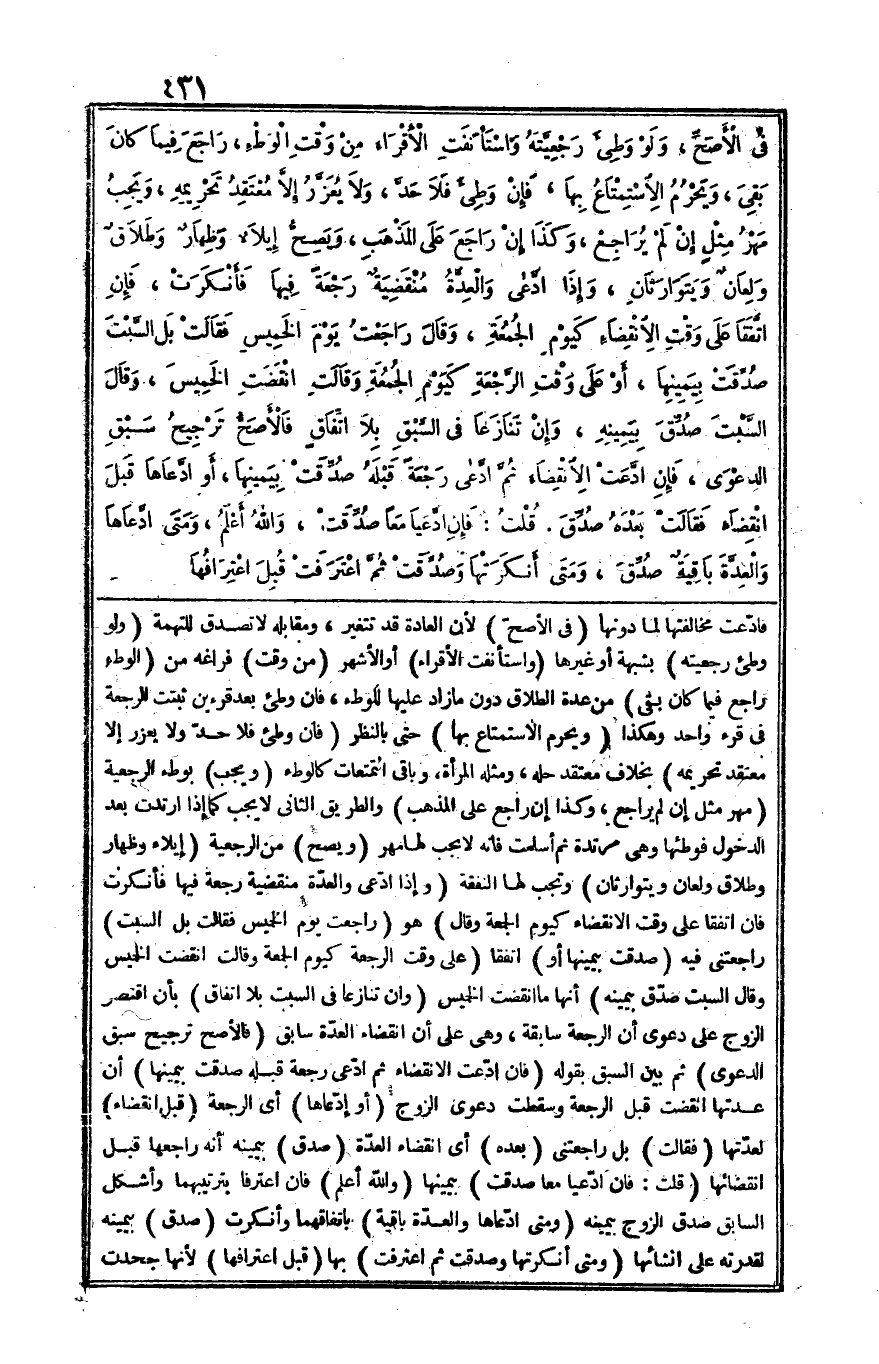 ٤٣١
فِى الْأَصَحِّ ، وَلَوْ وَطِىَٔ رَجْعِيَّتَهُ وَاسْتَأْنَفَتِ الْأَقْرَاءَ مِنْ وَقْتِ الْوَطْءِ ، رَاجَعَ فِيمَا كَانَ
بَقِىَ ، وَيَحْرُمُ الِاسْتِمْتَاعُ بِهَا ، فَإِنْ وَطِىَٔ فَلَا حَدَّ ، وَلَا يُعَزَّرُ إِلَّا مُعْتَقِدُ تَحْرِيمِهِ ، وَيَجِبُ
مَهْرُ مِثْلٍ إِنْ لَمْ يُرَاجِعْ ، وَكَذَا إِنْ رَاجَعَ عَلَى المَذْهَبِ ، وَيَصِحُّ إِيلَاءٌ وَظِهَارٌ وَطَلَاقٌ
وَلِعَانٌ وَيَتَوَارَثَانِ ، وَإِذَا ادَّعٰى وَالْعِدَّةُ مُنْقَضِيَةٌ رَجْعَةً فِيهَا فَأَنْكَرَتْ ، فَإِنِ
اتَّفَقَا عَلَى وَقْتِ الِانْقِضَاءِ كَيَوْمِ الْجُمُعَةِ ، وَقَالَ رَاجَعْتُ يَوْمَ الْخَمِيسِ فَقَالَتْ بَلِ السَّبْتَ
صُدِّقَتْ بِيَمِينِهَا ، أَوْ عَلَى وَقْتِ الرَّجْعَةِ كَيَوْمِ الْجُمُعَةِ وَقَالَتِ انْقَضَتِ الْخَمِيسَ ، وَقَالَ
السَّبْتَ صُدِّقَ بِيَمِينِهِ ، وَإِنْ تَنَازَعَا فِى السَّبْقِ بِلَا اتِّفَاقٍ فَالْأَصَحُّ تَرْجِيحُ سَبْقِ
الدعْوَى ، فَإِنِ ادَّعَتْ الِانْقِضَاءَ ثُمَّ ادَّعٰى رَجْعَةً قَبْلَهُ صُدِّقَتْ بِيَمِينِهَا ، أَوِ ادَّعَاهَا قَبْلَ
انْقِضَاءٍ فَقَالَتْ بَعْدَهُ صُدِّقَ . قُلْتُ : فَإِنِ ادَّعَيَا مَعًا صُدِّقَتْ ، وَاللهُ أَعْلَمُ ، وَمَتَى ادَّعَاهَا
وَالْعِدَّةُ بَاقِيَةٌ صُدِّقَ ، وَمَتَى أَنْكَرَتْهَا وَصُدِّقَتْ ثُمَّ اعْتَرَفَتْ قُبِلَ اعْتِرَافُهَا
فادّعت مخالفتها لما دونها ( فى الأصح ) لأن العادة قد تتغير ، ومقابله لاتصدق للتهمة ( ولو
وطئ رجعيته ) بشبهة أو غيرها (واستأنفت الأقراء) أوالأشهر (من وقت) فراغه من ( الوطء
راجع فيما كان بقى ) من عدة الطلاق دون مازاد عليها للوطء ، فان وطئ بعد قرءين ثبتت الرجعة
فى قرء واحد وهكذا ( ويحرم الاستمتاع بها ) حتى بالنظر ( فان وطئ فلا حدّ ولا يعزر إلا
معتقد تحريمه ) بخلاف معتقد حله ، ومثله المرأة، وباقى التمتعات كالوطء ( ويجب) بوطء الرجعية
( مهر مثل إن لم يراجع ، وكذا إن راجع على المذهب ) والطريق الثانى لايجب كما إذا ارتدت بعد
الدخول فوطئها وهى مرتدة ثم أسلمت فانه لايجب لها مهر ( ويصح ) من الرجعية ( إيلاء وظهار
وطلاق ولعان ويتوارثان ) وتجب لها النفقة ( وإذا ادّعى والعدّة منقضية رجعة فيها فأنكرت
فان اتفقا على وقت الانقضاء كيوم الجمعة وقال ) هو ( راجعت يوم الخميس فقالت بل السبت )
راجعتنى فيه ( صدقت بيمينها أو ) اتفقا ( على وقت الرجعة كيوم الجمعة وقالت انقضت الخميس
وقال السبت صدّق بيمينه ) أنها ماانقضت الخميس ( وان تنازعا فى السبت بلا اتفاق ) بأن اقتصر
الزوج على دعوى أن الرجعة سابقة ، وهى على أن انقضاء العدّة سابق ( فالأصح ترجيح سبق
الدعوى ) ثم بين السبق بقوله ( فان ادّعت الانقضاء ثم ادّعى رجعة قبله صدقت بيمينها ) أن
عدتها انقضت قبل الرجعة وسقطت دعوى الزوج ( أو إدّعاها ) أى الرجعة ( قبل انقضاء )
لعدّتها ( فقالت ) بل راجعتنى ( بعده ) أى انقضاء العدّة ( صدق ) بيمينه أنه راجعها قبل
انقضائها ( قلت : فان ادّعيا معا صدقت ) بيمينها ( والله أعلم ) فان اعترفا بترتيبهما وأشكل
السابق صدق الزوج بيمينه ( ومتى ادّعاها والعدّة باقية ) باتفاقهما وأنكرت ( صدق ) بيمينه
لقدرته على انشائها ( ومتى أنكرتها وصدقت ثم اعترفت ) بها ( قبل اعترافها ) لأنها جحدت